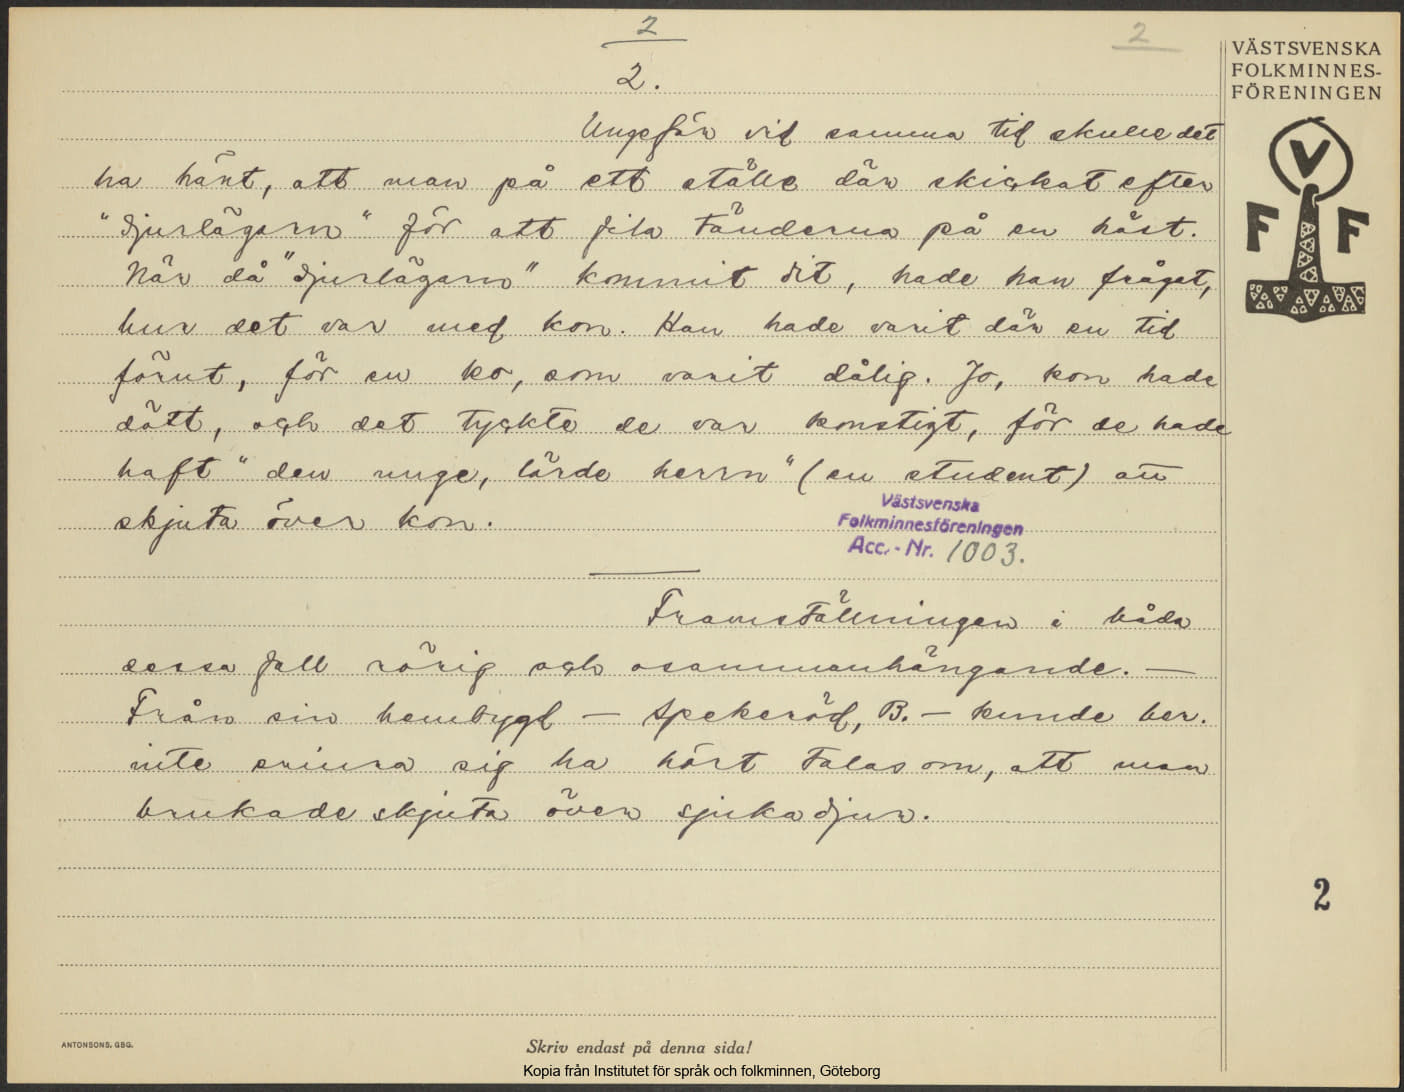 2
2
2.
VÄSTSVENSKA
FOLKMINNES-
FÖRENINGEN
V
F F
Ungefär vid samma tid skulle det
ha hänt, att man på ett ställe där skickat efter
"djurlägarn" för att fila tänderna på en häst.
När då "djurlägarn" kommit dit, hade han frågat,
hur det var med kon. Han hade varit där en tid
förut, för en ko, som varit dålig. Jo, kon hade
dött, och det tyckte de var konstigt, för de hade
haft "den unge, lärde herrn" (en student) att
skjuta över kon.
Västsvenska
Folkminnesföreningen
Acc.-Nr. 1003.
Framställningen i båda
dessa fall rörig och osammanhängande. —
Från sin hembygd — Spekeröd, B. — kunde ber.
inte erinra sig ha hört talas om, att man
brukade skjuta över sjuka djur.
2
ANTONSONS. GBG.
Skriv endast på denna sida!
Kopia från Institutet för språk och folkminnen, Göteborg